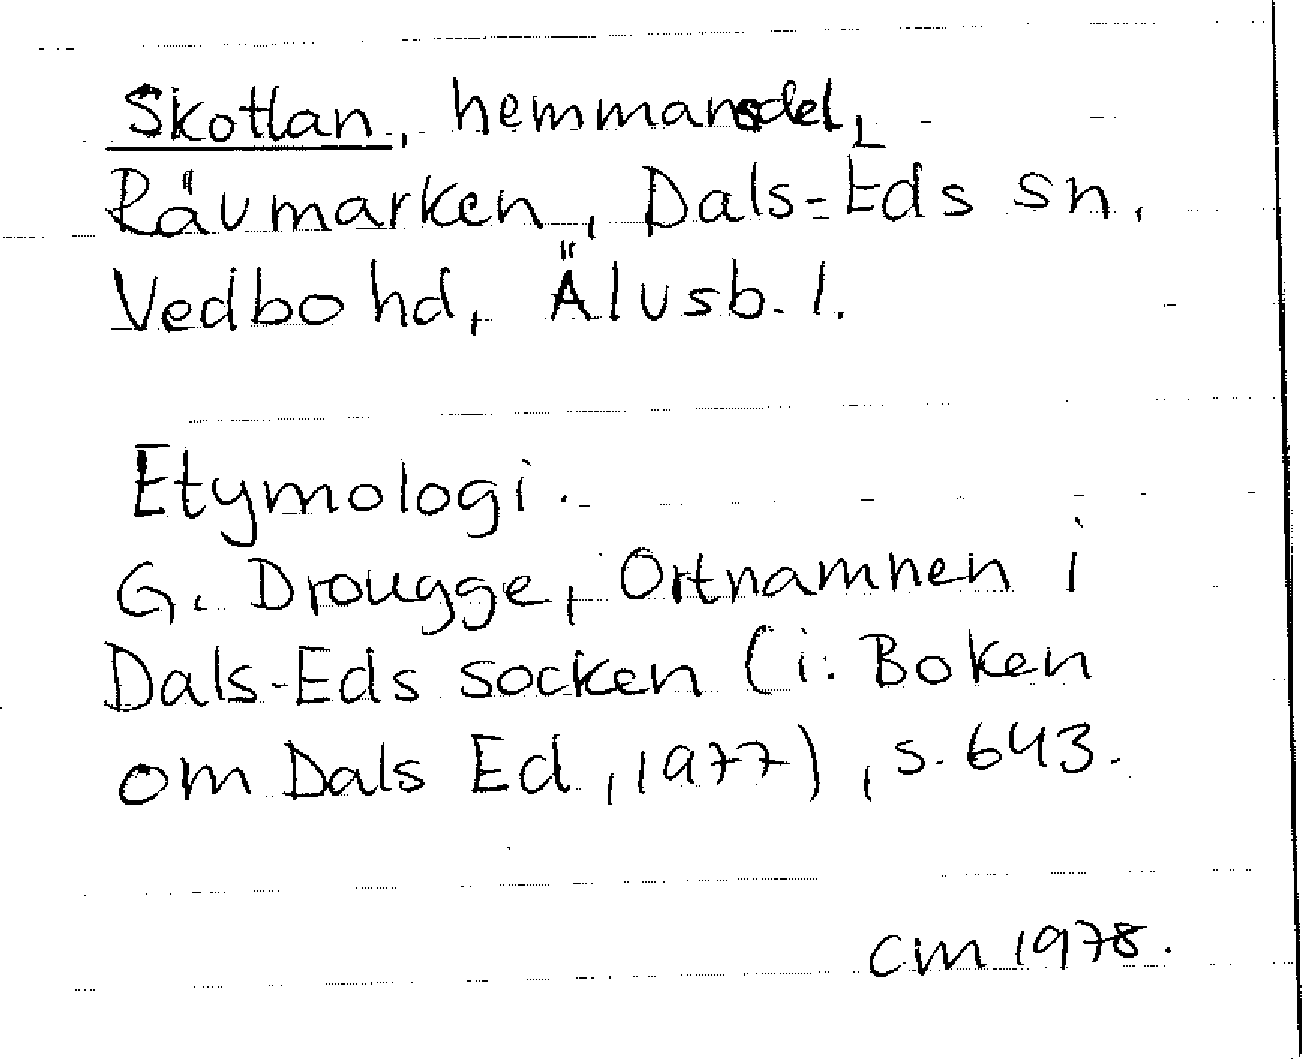 Skotlan, hemmansdel,
Rävmarken, Dals-Eds sn,
Vedbo hd, Älvsb. l.
Etymologi.
G. Drougge, Ortnamnen i
Dals-Eds socken (i: Boken
om Dals Ed, 1977), s. 643.
CM 1978.